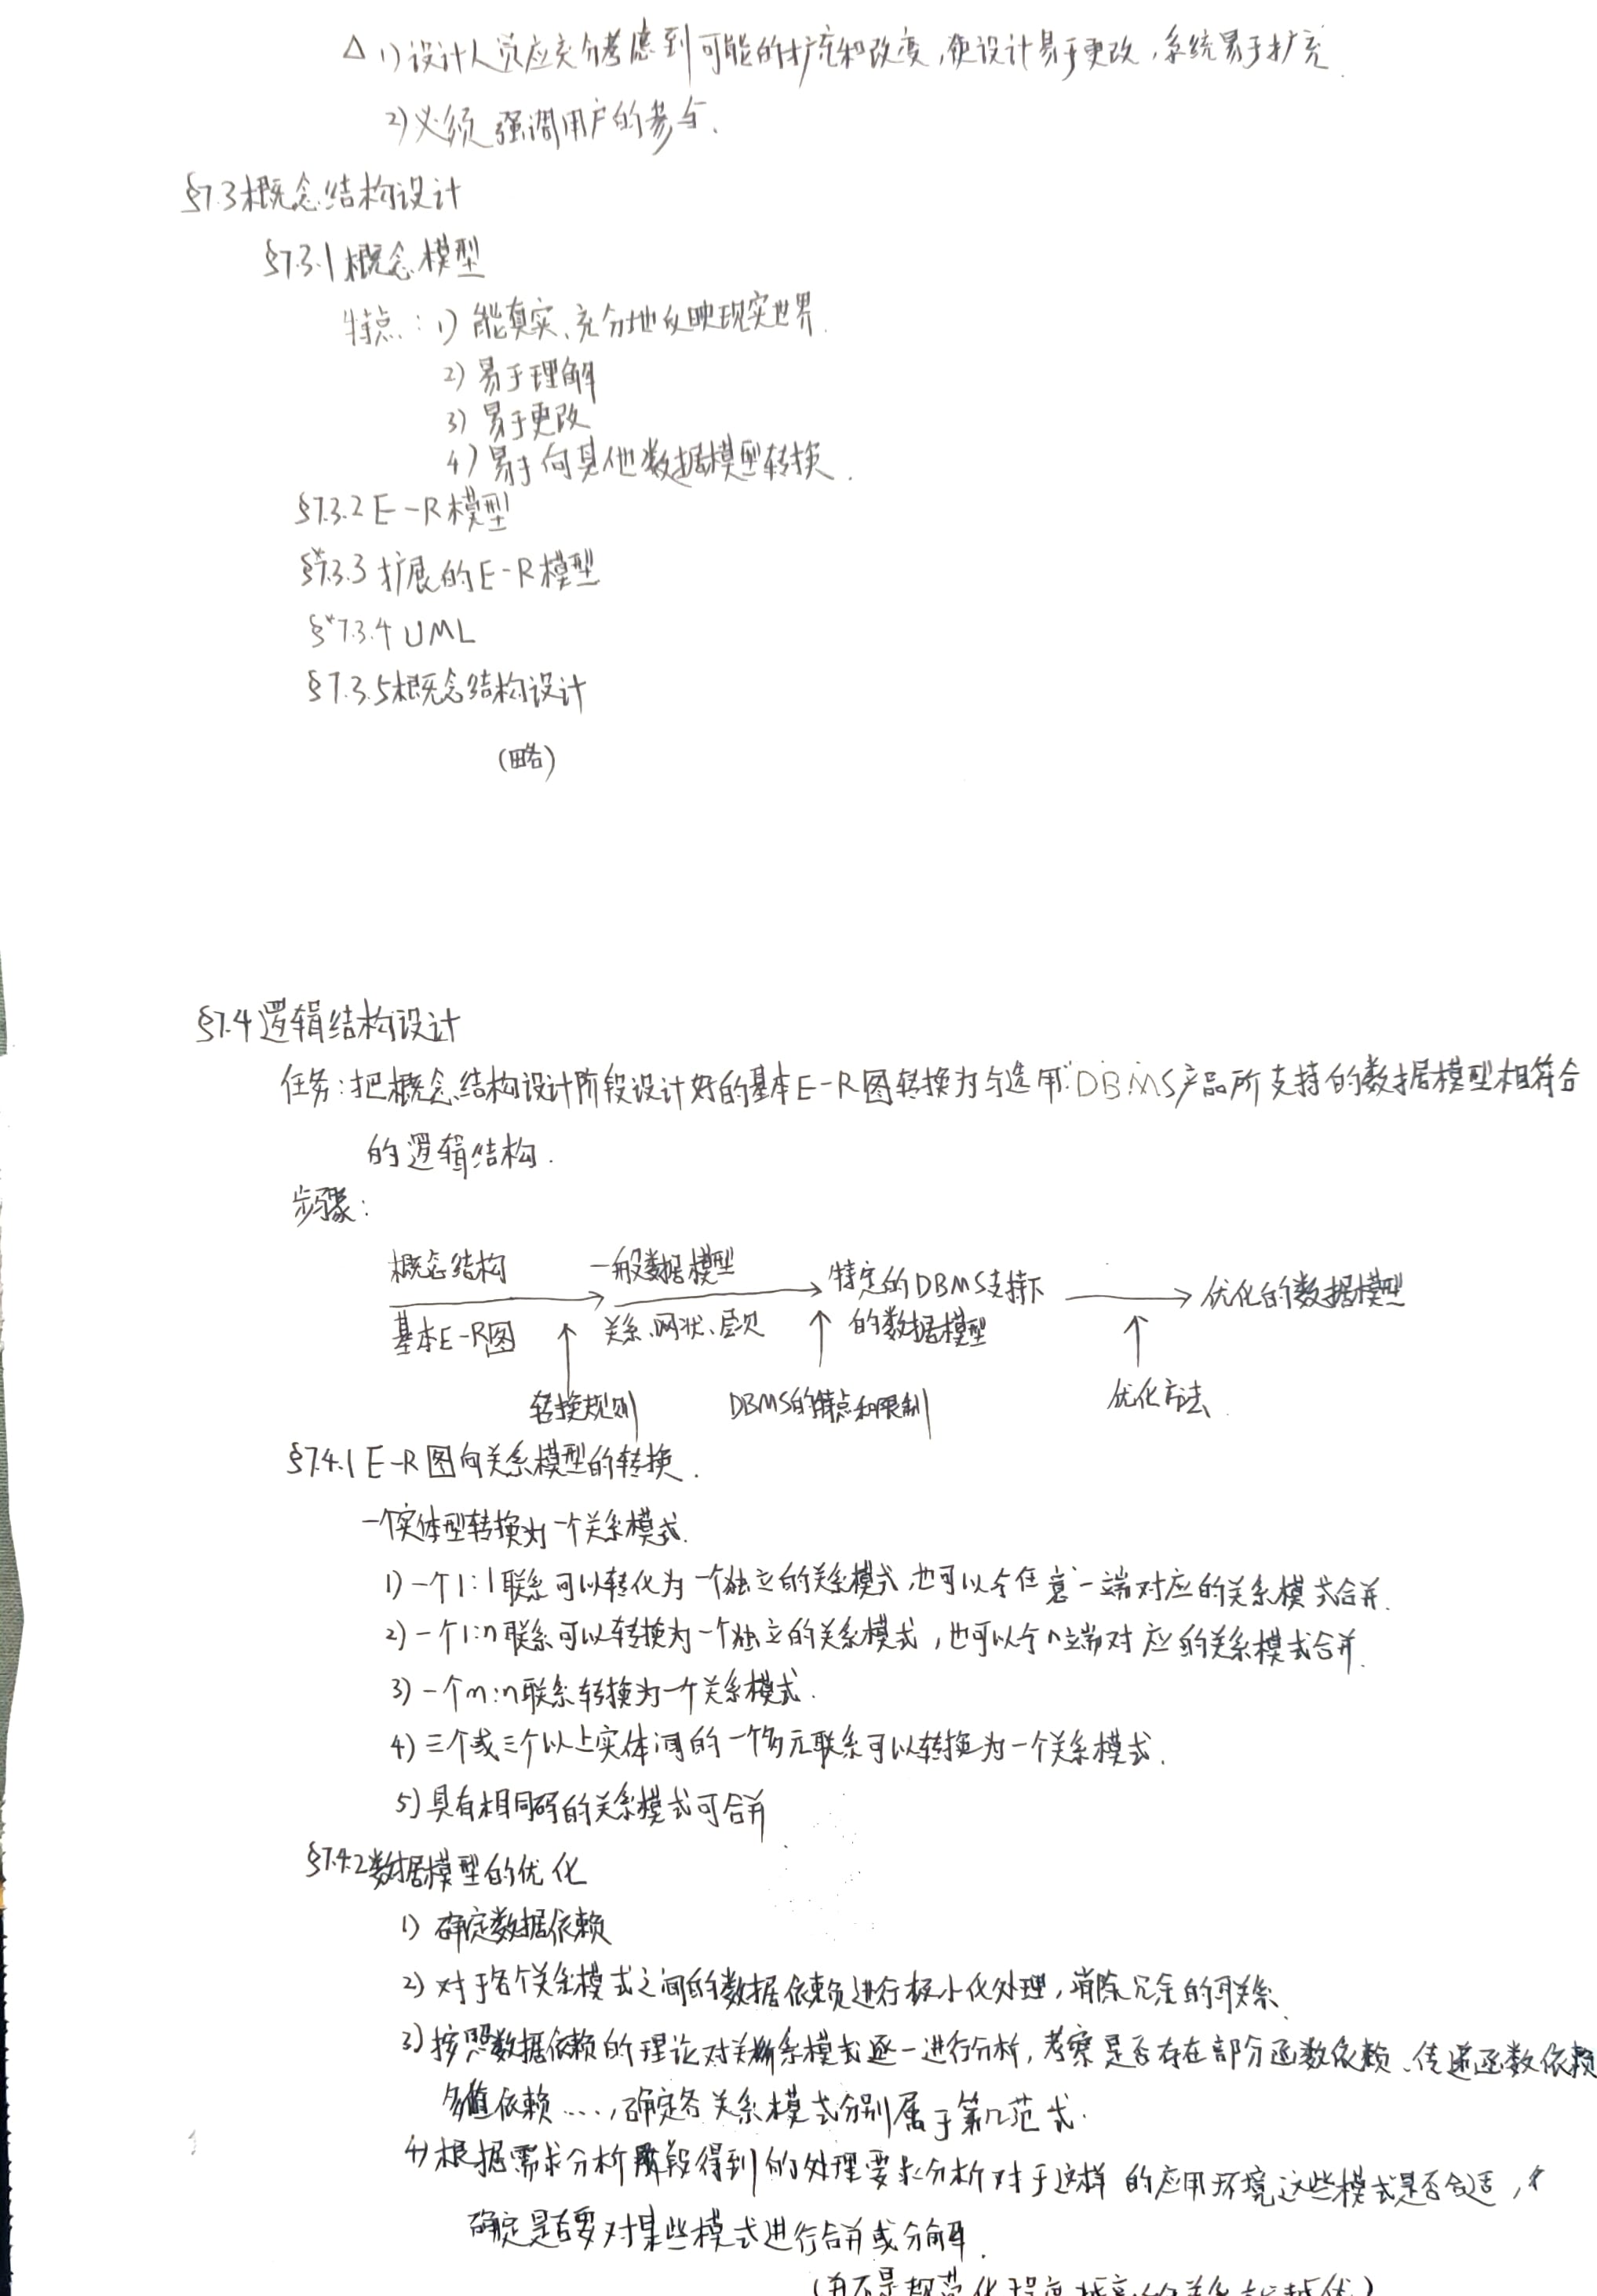 △ 1) 设计人员应充分考虑到可能的扩充和改变,使设计易于更改,系统易于扩充.
2) 必须强调用户的参与.
§7.3 概念结构设计
§7.3.1 概念模型
特点: 1) 能真实、充分地反映现实世界.
2) 易于理解
3) 易于更改
4) 易于向其他数据模型转换.
§7.3.2 E-R模型
§*7.3.3 扩展的E-R模型
§*7.3.4 UML
§7.3.5 概念结构设计
(略)
§7.4 逻辑结构设计
任务:把概念结构设计阶段设计好的基本E-R图转换为与选用DBMS产品所支持的数据模型相符合
的逻辑结构.
步骤:
概念结构 一般数据模型 特定的DBMS支持下 优化的数据模型
基本E-R图 关系、网状、层次 的数据模型
转换规则 DBMS的特点和限制 优化方法
§7.4.1 E-R图向关系模型的转换.
一个实体型转换为一个关系模式.
1) 一个1:1联系可以转化为一个独立的关系模式,也可以与任意一端对应的关系模式合并.
2) 一个1:n联系可以转换为一个独立的关系模式,也可以与n端对应的关系模式合并.
3) 一个m:n联系转换为一个关系模式.
4) 三个或三个以上实体间的一个多元联系可以转换为一个关系模式.
5) 具有相同码的关系模式可合并
§7.4.2 数据模型的优化
1) 确定数据依赖
2) 对于各个关系模式之间的数据依赖进行极小化处理,消除冗余的联系.
3) 按照数据依赖的理论对关系模式逐一进行分析,考察是否存在部分函数依赖、传递函数依赖
多值依赖…,确定各关系模式分别属于第几范式.
4) 根据需求分析阶段得到的处理要求分析对于这样的应用环境这些模式是否合适,
确定是否要对某些模式进行合并或分解.
(并不是规范化程度越高的关系就越优)